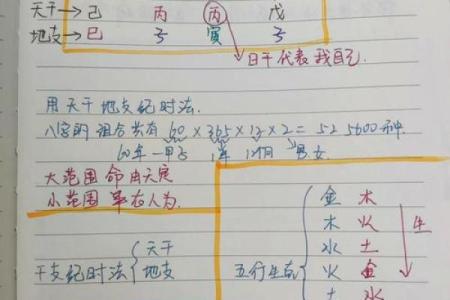 天干→己 丙 丙 戊
地支→巳 子 寅 子
日干代表我自己.
用天干地支纪时法.
八字的组合共有60×365×12×2=525600种.
60年一甲子 1年 12个月 男.女
大范围命由天定
小范围事在人为.
干支纪时法 { 天干 地支
五行生克
金 木
木 火
水 土
火 金
土 水
生